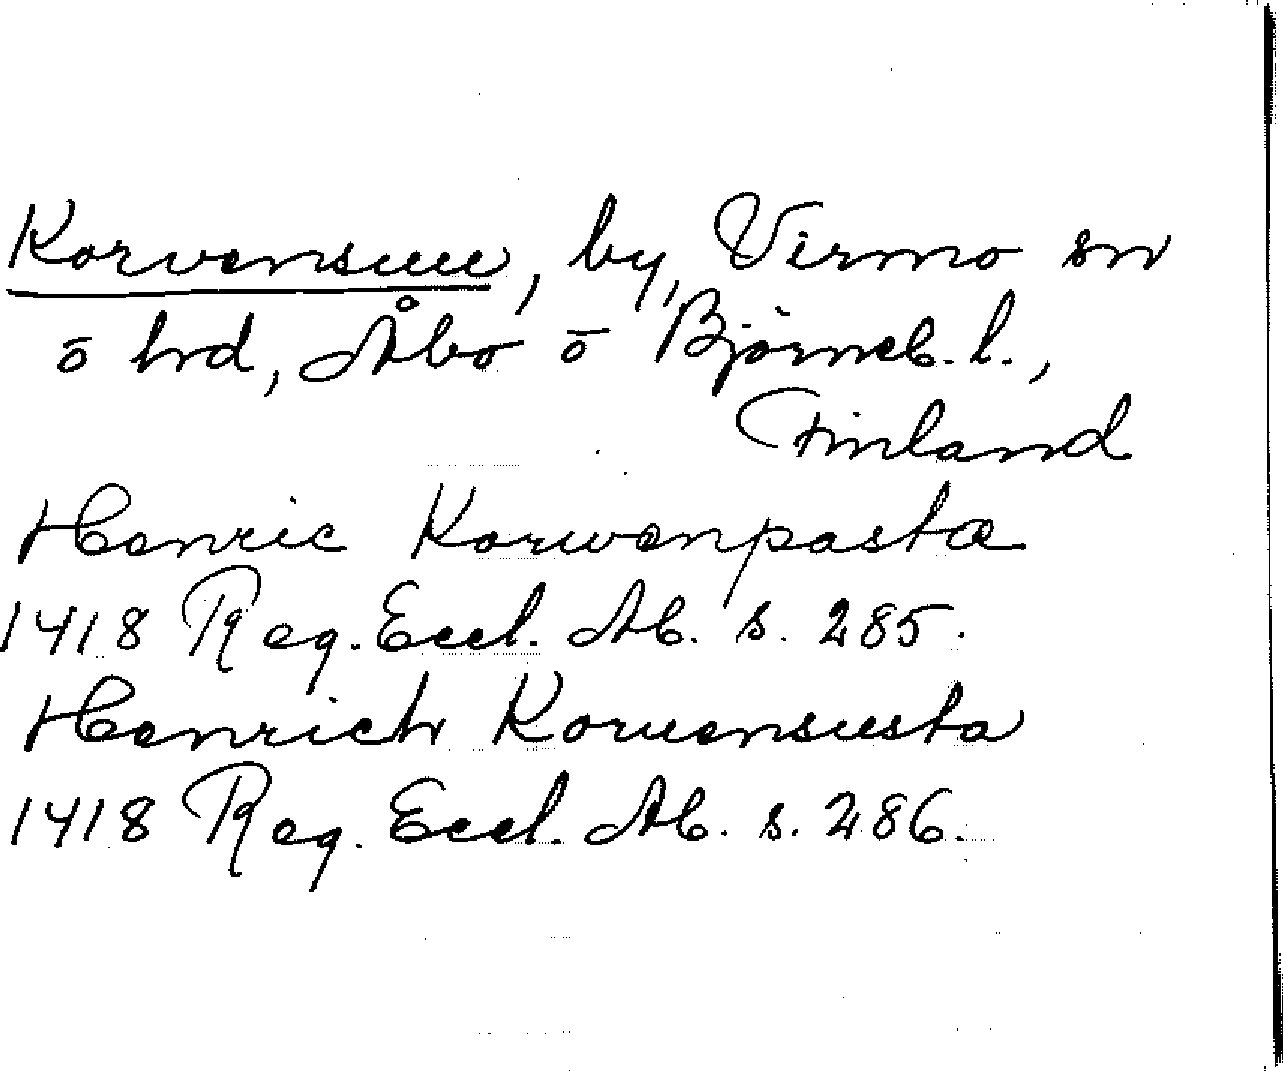 Korvensuu, by, Virmo sn
ō hrd, Åbo ō Björneb. l.,
Finland
Henric Korwenpasta
1418 Reg. Eccl. Ab. s. 285.
Henrich Koruensusta
1418 Reg. Eccl. Ab. s. 286.